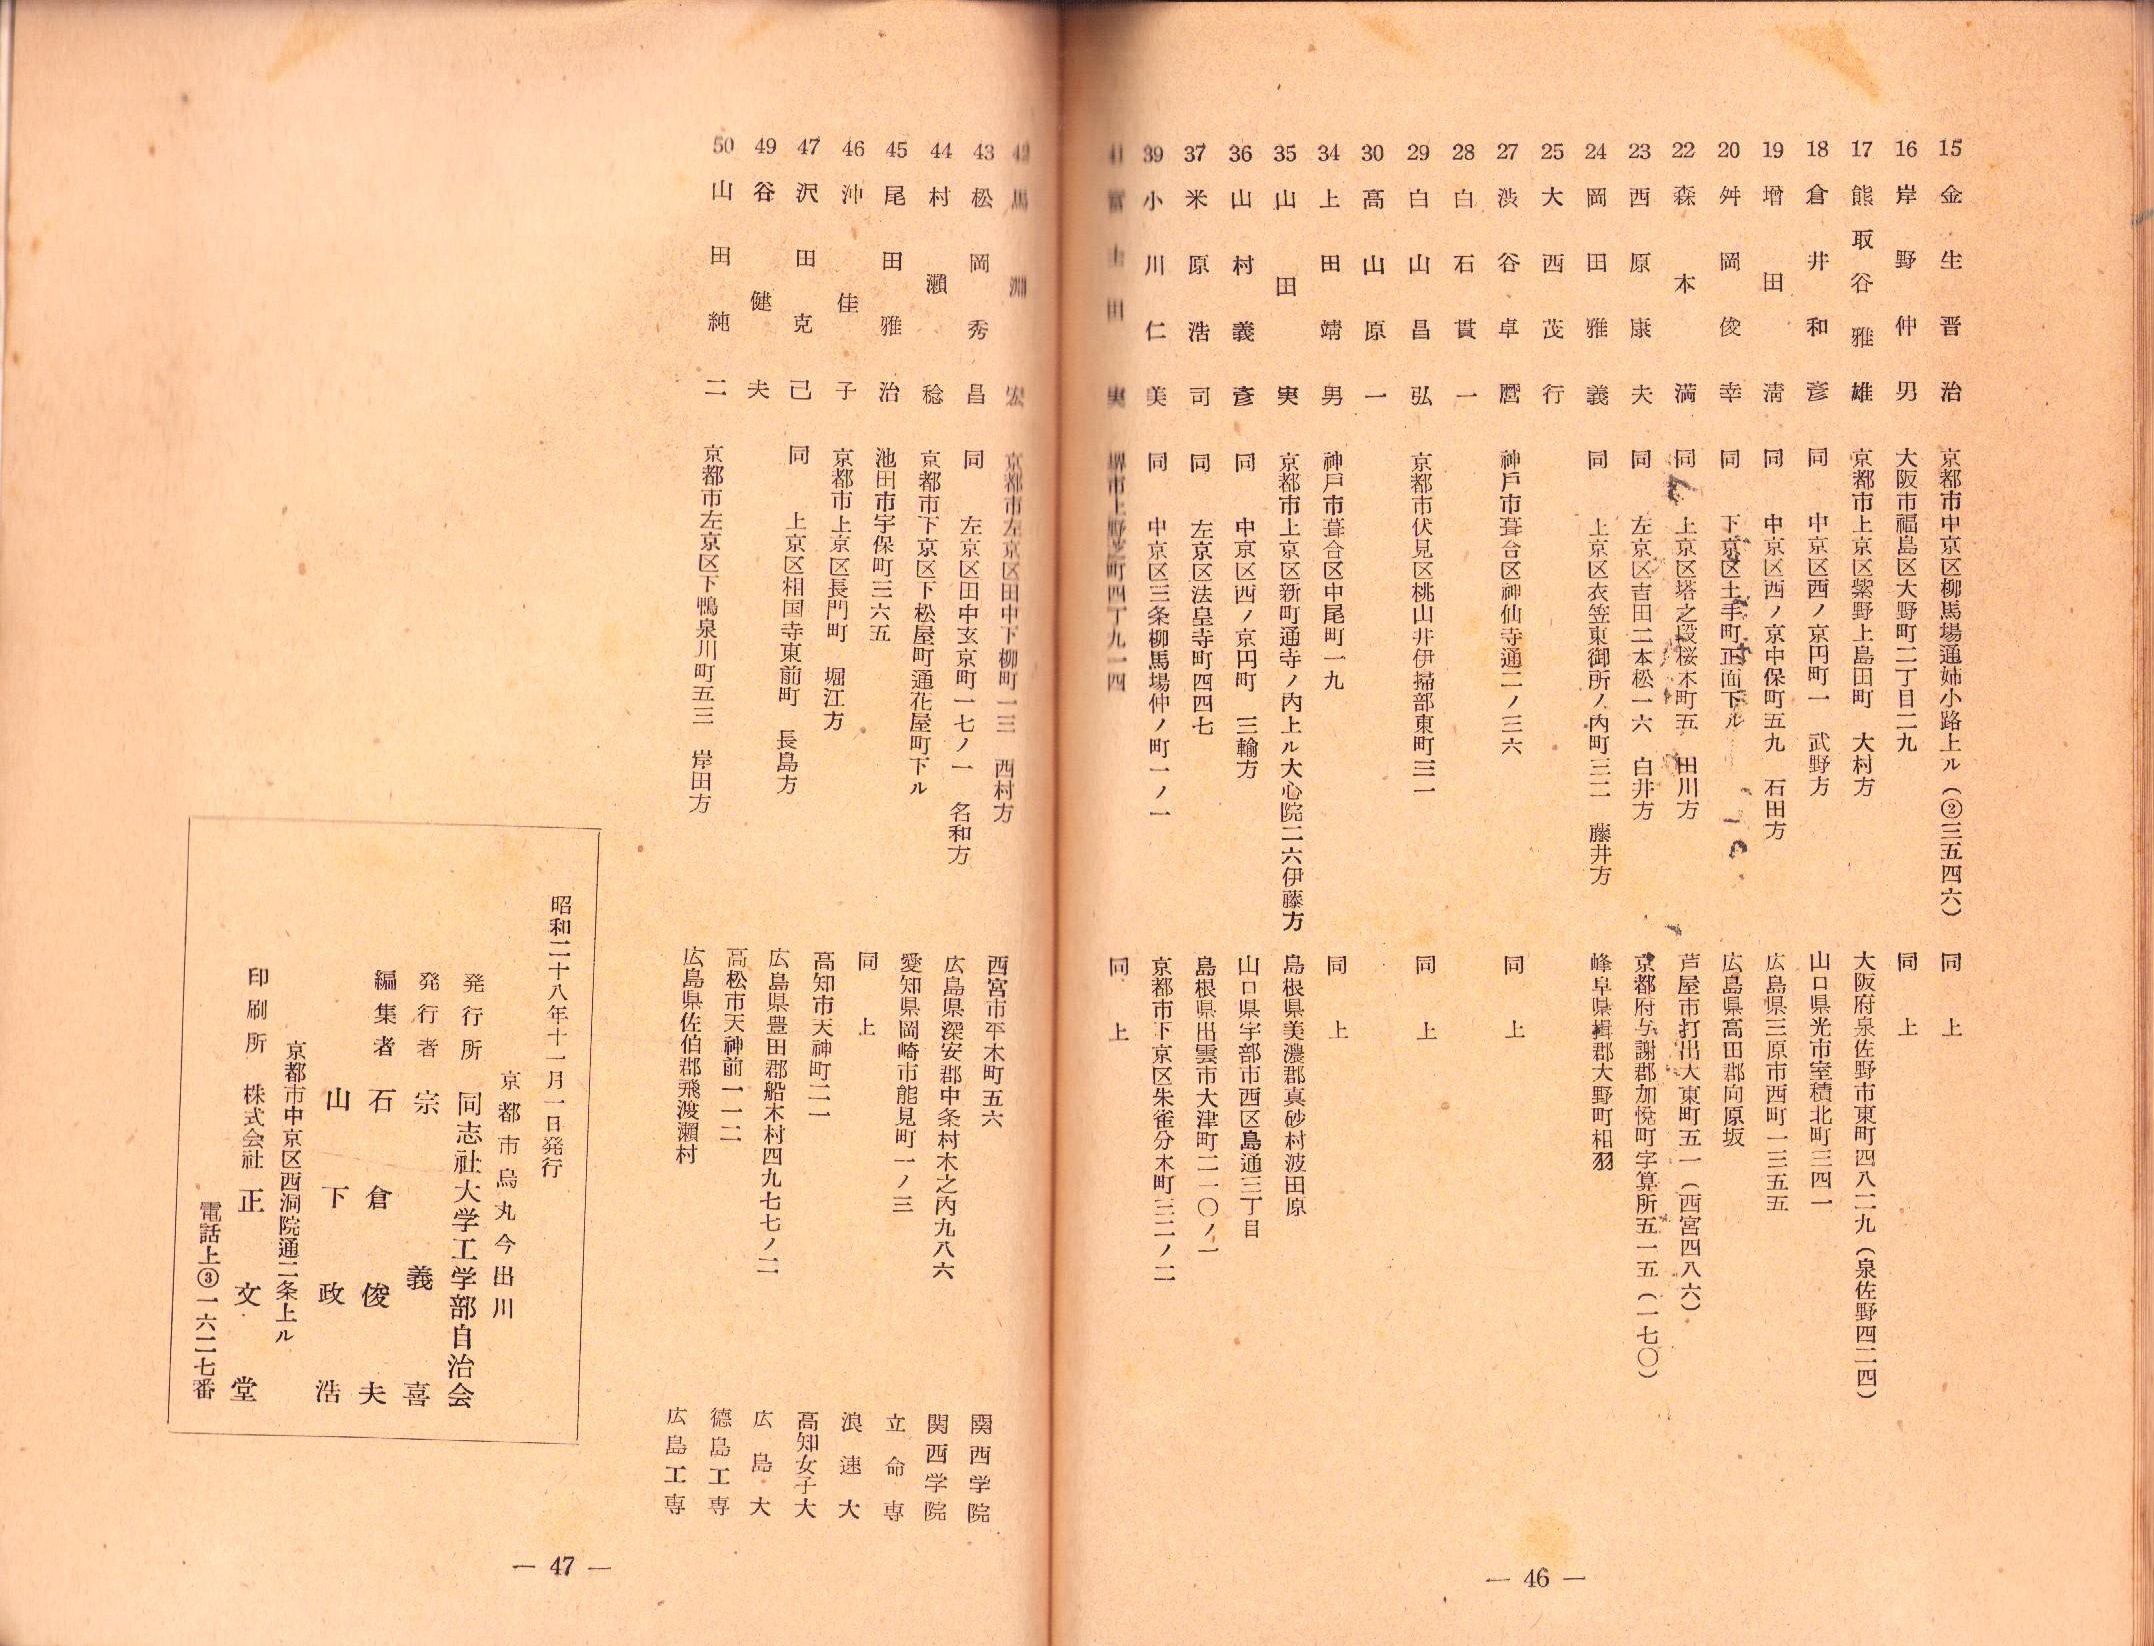 15 金生晋治 京都市中京区柳馬場通姉小路上ル(②三五四六) 同上
16 岸野仲男 大阪市福島区大野町二丁目二九 同上
17 熊取谷雅雄 京都市上京区紫野上島田町 大村方 大阪府泉佐野市東町四八二九(泉佐野四二四)
18 倉井和彦 同 中京区西ノ京円町一 武野方 山口県光市室積北町三四一
19 増田清 同 中京区西ノ京中保町五九 石田方 広島県三原市西町一三五五
20 舛岡俊幸 同 下京区土手町正面下ル 広島県高田郡向原坂
22 森本満 同 上京区塔之段桜木町五 田川方 芦屋市打出大東町五一(西宮四八六)
23 西原康夫 同 左京区吉田二本松一六 白井方 京都府与謝郡加悦町字算所五一五(一七〇)
24 岡田雅義 同 上京区衣笠東御所ノ内町三二 藤井方 岐阜県揖郡大野町相羽
25 大西茂行
27 渋谷卓麿 神戸市葺合区神仙寺通二ノ三六 同上
28 白石貫一
29 白山昌弘 京都市伏見区桃山井伊掃部東町三一 同上
30 高山原一
34 上田靖男 神戸市葺合区中尾町一九 同上
35 山田実 京都市上京区新町通寺ノ内上ル大心院二六伊藤方 島根県美濃郡真砂村波田原
36 山村義彦 同 中京区西ノ京円町 三輪方 山口県宇部市西区島通三丁目
37 米原浩司 同 左京区法皇寺町四四七 島根県出雲市大津町二一〇ノ一
39 小川仁美 同 中京区三条柳馬場仲ノ町一ノ一 京都市下京区朱雀分木町三二ノ二
41 富士田実 堺市上野芝町四丁九一四 同上
— 46 —
42 馬淵宏 京都市左京区田中下柳町一三 西村方 西宮市平木町五六 関西学院
43 松岡秀昌 同 左京区田中玄京町一七ノ一 名和方 広島県深安郡中条村木之内九八六 関西学院
44 村瀬稔 京都市下京区下松屋町通花屋町下ル 愛知県岡崎市能見町一ノ三 立命専
45 尾田雅治 池田市宇保町三六五 同上 浪速大
46 沖佳子 京都市上京区長門町 堀江方 高知市天神町二一 高知女子大
47 沢田克己 同 上京区相国寺東前町 長島方 広島県豊田郡船木村四九七七ノ二 広島大
49 谷健夫 高松市天神前一一二 徳島工専
50 山田純二 京都市左京区下鴨泉川町五三 岸田方 広島県佐伯郡飛渡瀬村 広島工専
昭和二十八年十一月一日発行
京都市烏丸今出川
発行所 同志社大学工学部自治会
発行者 宗義喜
編集者 石倉俊夫
山下政浩
京都市中京区西洞院通二条上ル
印刷所 株式会社 正文堂
電話上③一六二七番
— 47 —